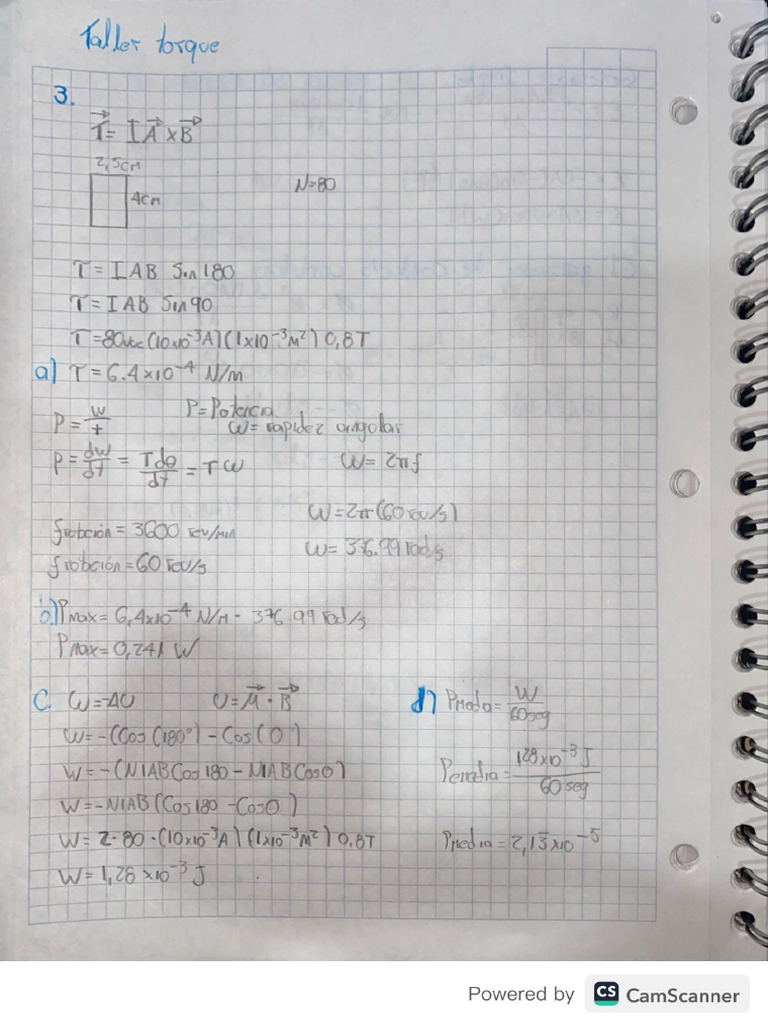 Taller torque
3.
T⃗ = I A⃗ x B⃗
2,5cm
4cm
N=80
T = IAB Sin 180
T = IAB Sin 90
T = 80 (10x10⁻³A)(1x10⁻³m²) 0,8T
a) T = 6.4x10⁻⁴ N/m
P = W/t
P = Potencia
ω = rapidez angular
P = dw/dt = Tdθ/dt = Tω
ω = 2πf
ω = 2π(60 rev/s)
frotación = 3600 rev/min
ω = 376.99 rad/s
frotación = 60 rev/s
b) Pmax = 6,4x10⁻⁴ N/m · 376.99 rad/s
Pmax = 0,241 W
C. W = -ΔU
U = M⃗ · B⃗
W = -(Cos(180°) - Cos(0°)
W = -(NIAB Cos 180 - NIAB Cos 0)
W = -NIAB (Cos 180 - Cos 0)
W = 2·80·(10x10⁻³A)(1x10⁻³m²) 0,8T
W = 1,28 x10⁻³ J
d) Pmedia = W/60seg
Pmedia = 128x10⁻³ J/60 seg
Pmedia = 2,13x10⁻⁵
Powered by CS CamScanner